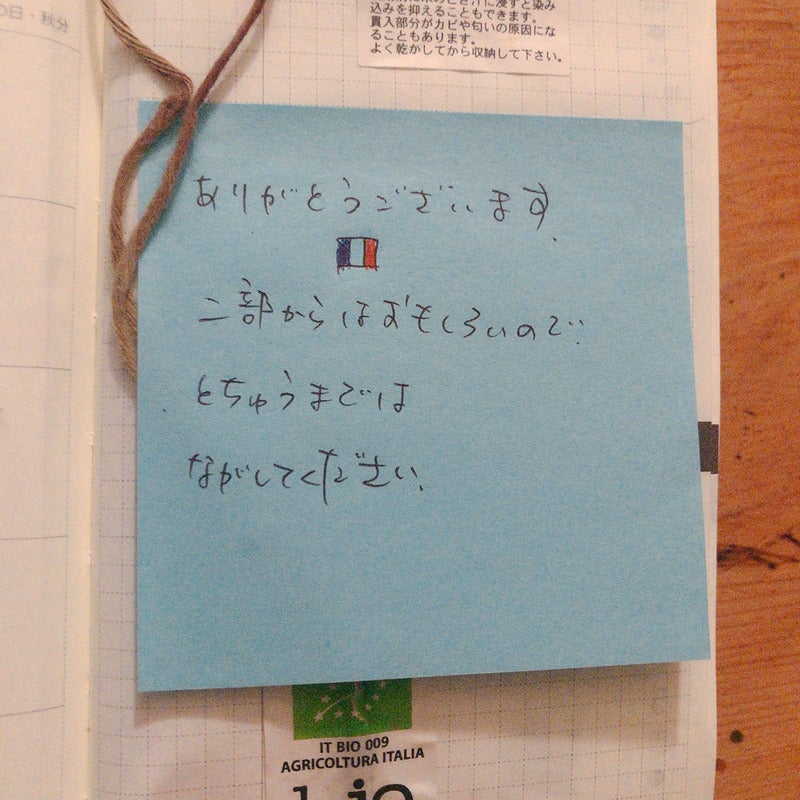 の日・秋分
込みを抑えることもできます。
貫入部分がカビや匂いの原因にな
ることもあります。
よく乾かしてから収納して下さい。
ありがとうございます.
二部からはおもしろいので.
とちゅうまでは
ながしてください.
IT BIO 009
AGRICOLTURA ITALIA
bio